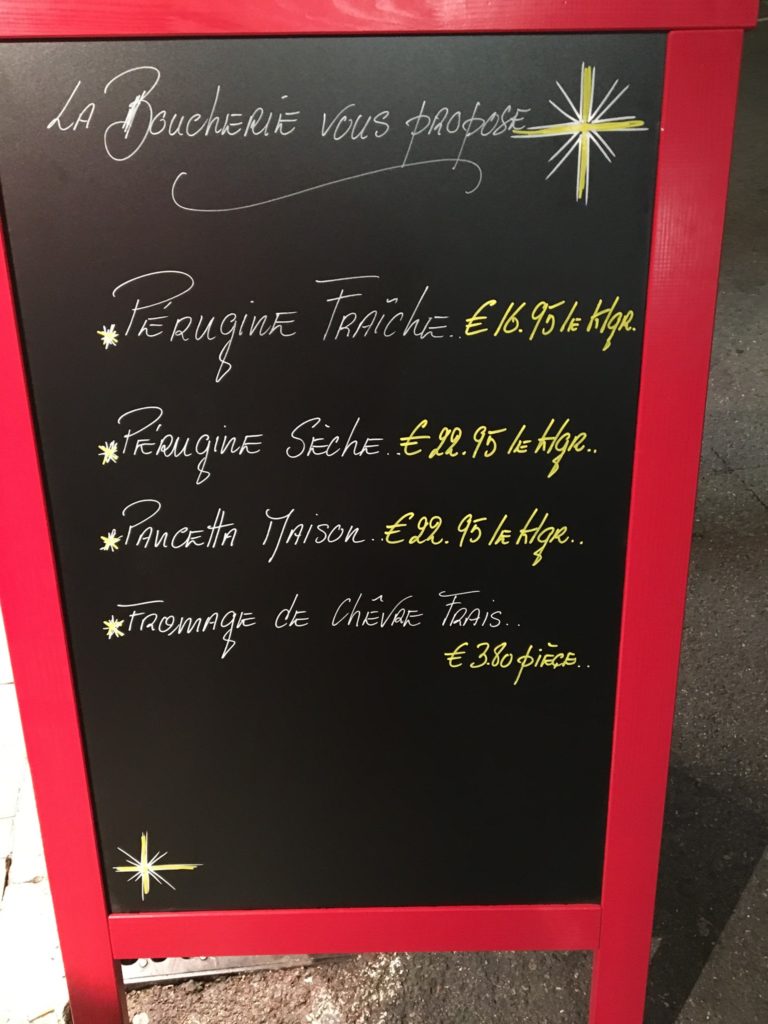 La Boucherie vous propose
Pérugine Fraîche.. € 16.95 le Klgr.
Pérugine Sèche.. € 22.95 le Klgr..
Pancetta Maison... € 22.95 le Klgr..
Fromage de Chêvre Frais..
€ 3.80 pièce..